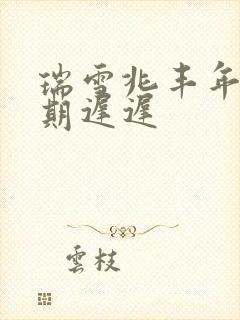 瑞雪兆丰年
期遲遲
雲枝